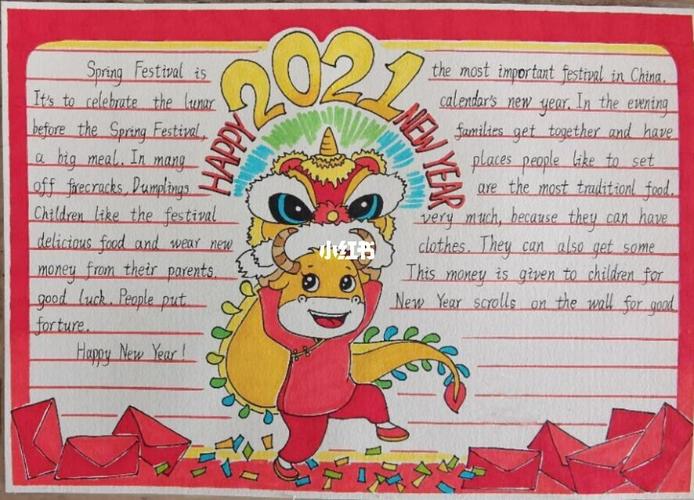 2021
HAPPY NEW YEAR
Spring Festival is the most important festival in China.
It's to celebrate the lunar calendar's new year. In the evening
before the Spring Festival, families get together and have
a big meal. In mang places people like to set
off firecracks. Dumplings are the most traditionl food.
Children like the festival very much, because they can have
delicious food and wear new clothes. They can also get some
money from their parents. This money is given to children for
good luck. People put New Year scrolls on the wall for good
forture.
Happy New Year!
小红书